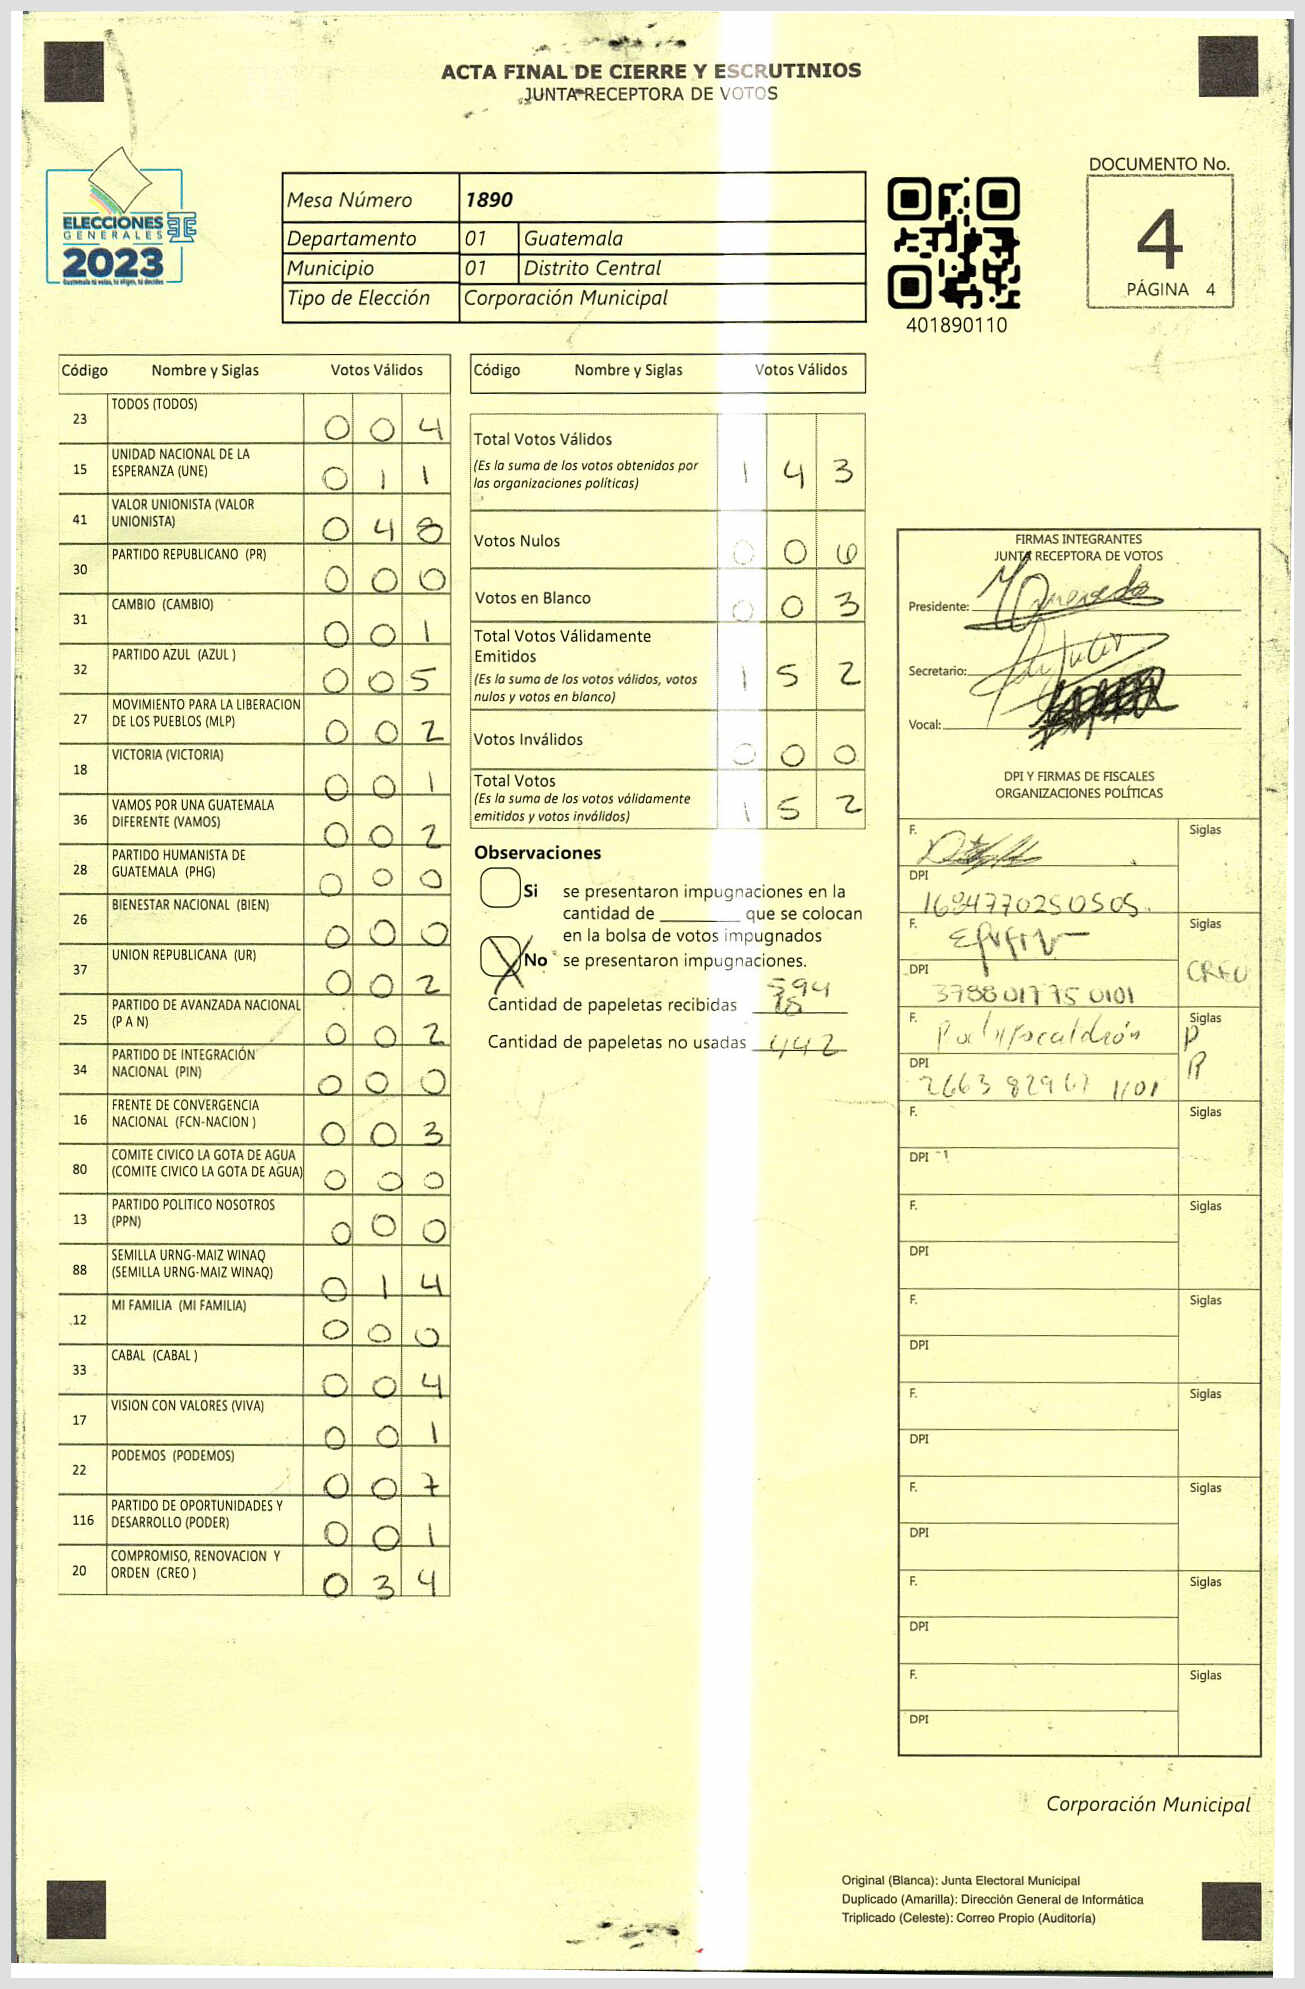 ACTA FINAL DE CIERRE Y ESCRUTINIOS
JUNTA RECEPTORA DE VOTOS
ELECCIONES
GENERALES
2023
Guatemala tú votas, tú eliges, tú decides
Mesa Número 1890
Departamento 01 Guatemala
Municipio 01 Distrito Central
Tipo de Elección Corporación Municipal
401890110
DOCUMENTO No.
4
PÁGINA 4
Código Nombre y Siglas Votos Válidos
23 TODOS (TODOS) 0 0 4
15 UNIDAD NACIONAL DE LA
ESPERANZA (UNE) 0 1 1
41 VALOR UNIONISTA (VALOR
UNIONISTA) 0 4 8
30 PARTIDO REPUBLICANO (PR) 0 0 0
31 CAMBIO (CAMBIO) 0 0 1
32 PARTIDO AZUL (AZUL ) 0 0 5
27 MOVIMIENTO PARA LA LIBERACION
DE LOS PUEBLOS (MLP) 0 0 2
18 VICTORIA (VICTORIA) 0 0 1
36 VAMOS POR UNA GUATEMALA
DIFERENTE (VAMOS) 0 0 2
28 PARTIDO HUMANISTA DE
GUATEMALA (PHG) 0 0 0
26 BIENESTAR NACIONAL (BIEN) 0 0 0
37 UNION REPUBLICANA (UR) 0 0 2
25 PARTIDO DE AVANZADA NACIONAL
(P A N) 0 0 2
34 PARTIDO DE INTEGRACIÓN
NACIONAL (PIN) 0 0 0
16 FRENTE DE CONVERGENCIA
NACIONAL (FCN-NACION ) 0 0 3
80 COMITE CIVICO LA GOTA DE AGUA
(COMITE CIVICO LA GOTA DE AGUA) 0 0 0
13 PARTIDO POLITICO NOSOTROS
(PPN) 0 0 0
88 SEMILLA URNG-MAIZ WINAQ
(SEMILLA URNG-MAIZ WINAQ) 0 1 4
12 MI FAMILIA (MI FAMILIA) 0 0 0
33 CABAL (CABAL ) 0 0 4
17 VISION CON VALORES (VIVA) 0 0 1
22 PODEMOS (PODEMOS) 0 0 7
116 PARTIDO DE OPORTUNIDADES Y
DESARROLLO (PODER) 0 0 1
20 COMPROMISO, RENOVACION Y
ORDEN (CREO ) 0 3 4
Código Nombre y Siglas Votos Válidos
Total Votos Válidos
(Es la suma de los votos obtenidos por
las organizaciones políticas) 1 4 3
Votos Nulos 0 0 6
Votos en Blanco 0 0 3
Total Votos Válidamente
Emitidos
(Es la suma de los votos válidos, votos
nulos y votos en blanco) 1 5 2
Votos Inválidos 0 0 0
Total Votos
(Es la suma de los votos válidamente
emitidos y votos inválidos) 1 5 2
Observaciones
Si se presentaron impugnaciones en la
cantidad de ________ que se colocan
en la bolsa de votos impugnados
X No se presentaron impugnaciones.
Cantidad de papeletas recibidas 594
Cantidad de papeletas no usadas 442
FIRMAS INTEGRANTES
JUNTA RECEPTORA DE VOTOS
Presidente:
Secretario:
Vocal:
DPI Y FIRMAS DE FISCALES
ORGANIZACIONES POLÍTICAS
F. Siglas
DPI
1694770250505
F. Siglas
DPI CREO
3788017750101
F. Siglas
P
DPI R
2663 82967 1101
F. Siglas
DPI
F. Siglas
DPI
F. Siglas
DPI
F. Siglas
DPI
F. Siglas
DPI
F. Siglas
DPI
F. Siglas
DPI
Corporación Municipal
Original (Blanca): Junta Electoral Municipal
Duplicado (Amarilla): Dirección General de Informática
Triplicado (Celeste): Correo Propio (Auditoría)